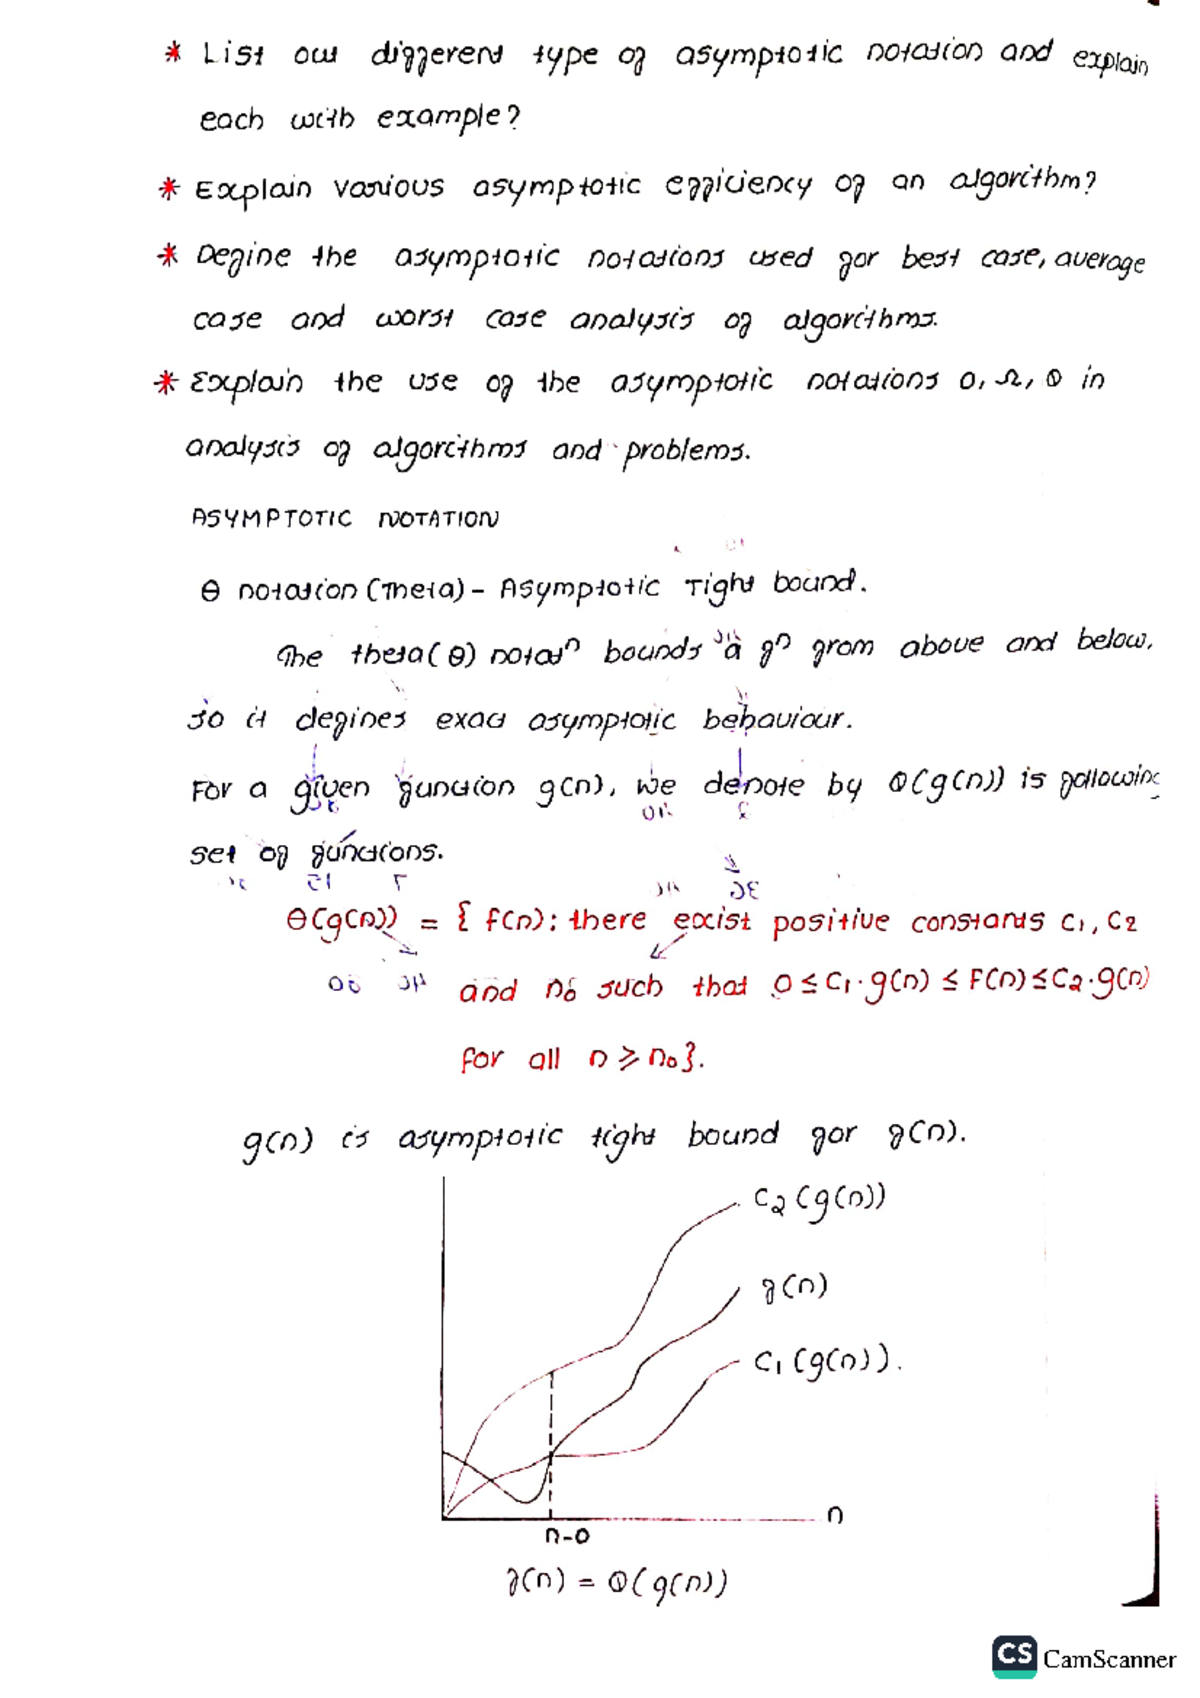 * List out different type of asymptotic notation and explain
each with example?
* Explain various asymptotic efficiency of an algorithm?
* Define the asymptotic notations used for best case, average
case and worst case analysis of algorithms.
* Explain the use of the asymptotic notations O, Ω, Θ in
analysis of algorithms and problems.
ASYMPTOTIC NOTATION
Θ notation (Theta) - Asymptotic Tight bound.
The theta(Θ) notatⁿ bounds a fⁿ from above and below.
So it defines exact asymptotic behaviour.
For a given function g(n), we denote by Θ(g(n)) is following
set of functions.
Θ(g(n)) = { F(n): there exist positive constants C₁, C₂
and n₀ such that 0 ≤ C₁·g(n) ≤ F(n) ≤ C₂·g(n)
for all n ≥ n₀}.
g(n) is asymptotic tight bound for f(n).
C₂(g(n))
f(n)
C₁(g(n)).
n
n-0
f(n) = Θ(g(n))
CS CamScanner